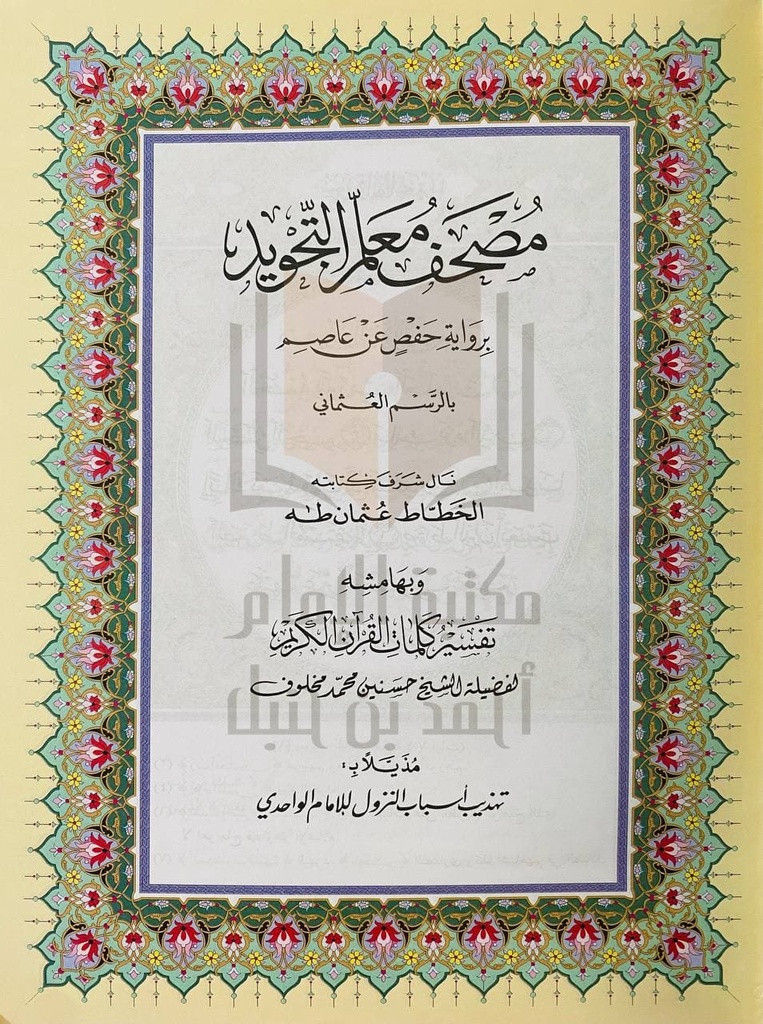 مُصْحَفُ مُعَلِّمُ التَّجْوِيد
بِرِوَايَةِ حَفْصٍ عَنْ عَاصِمٍ
بالرَّسْمِ العُثماني
نَال شَرَفَ كِتَابته
الخَطّاط عُثمان طٰه
وَبهَامِشهِ
تَفْسِيرُ كَلِمَاتِ القُرْآنِ الكَرِيْمِ
لفضيلة الشيخ حسنين محمد مخلوف
مُذَيَّلاً بـ:
تهذيب أسباب النزول للإمام الواحدي
مكتبة الإمام
أحمد بن حنبل